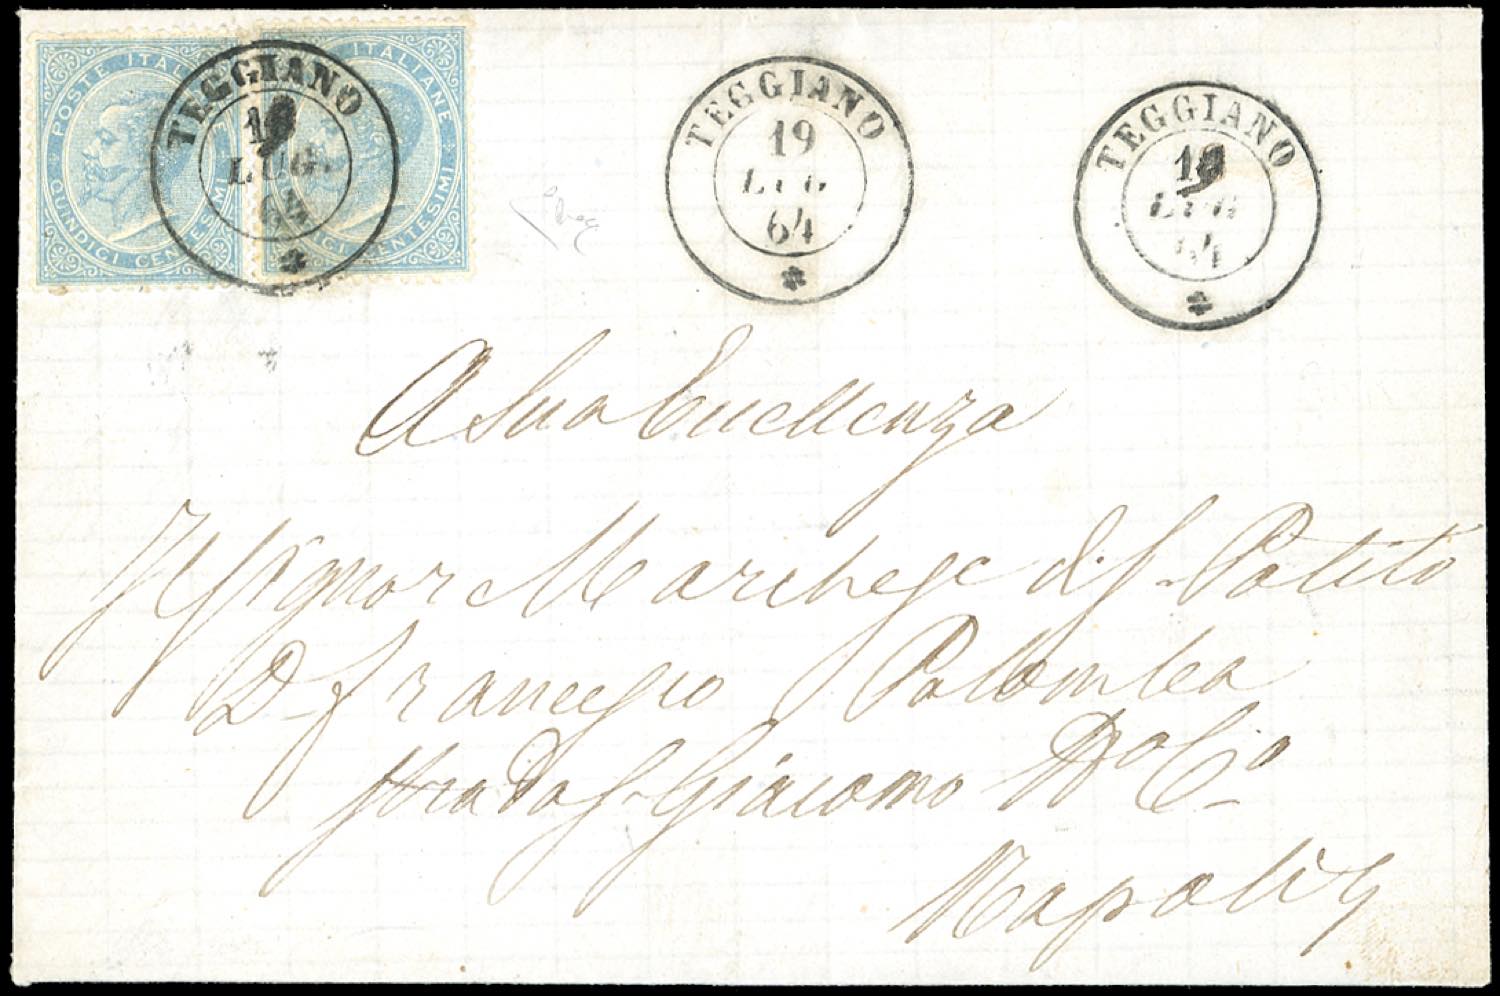 POSTE ITALIANE QUINDICI CENTESIMI
POSTE ITALIANE QUINDICI CENTESIMI
TEGGIANO
19
LUG.
64
TEGGIANO
19
LUG
64
TEGGIANO
19
LUG
64
A Sua Eccellenza
Il Signor Marchese di
D. Francesco Palomba
Strada S. Giacomo
Napoli